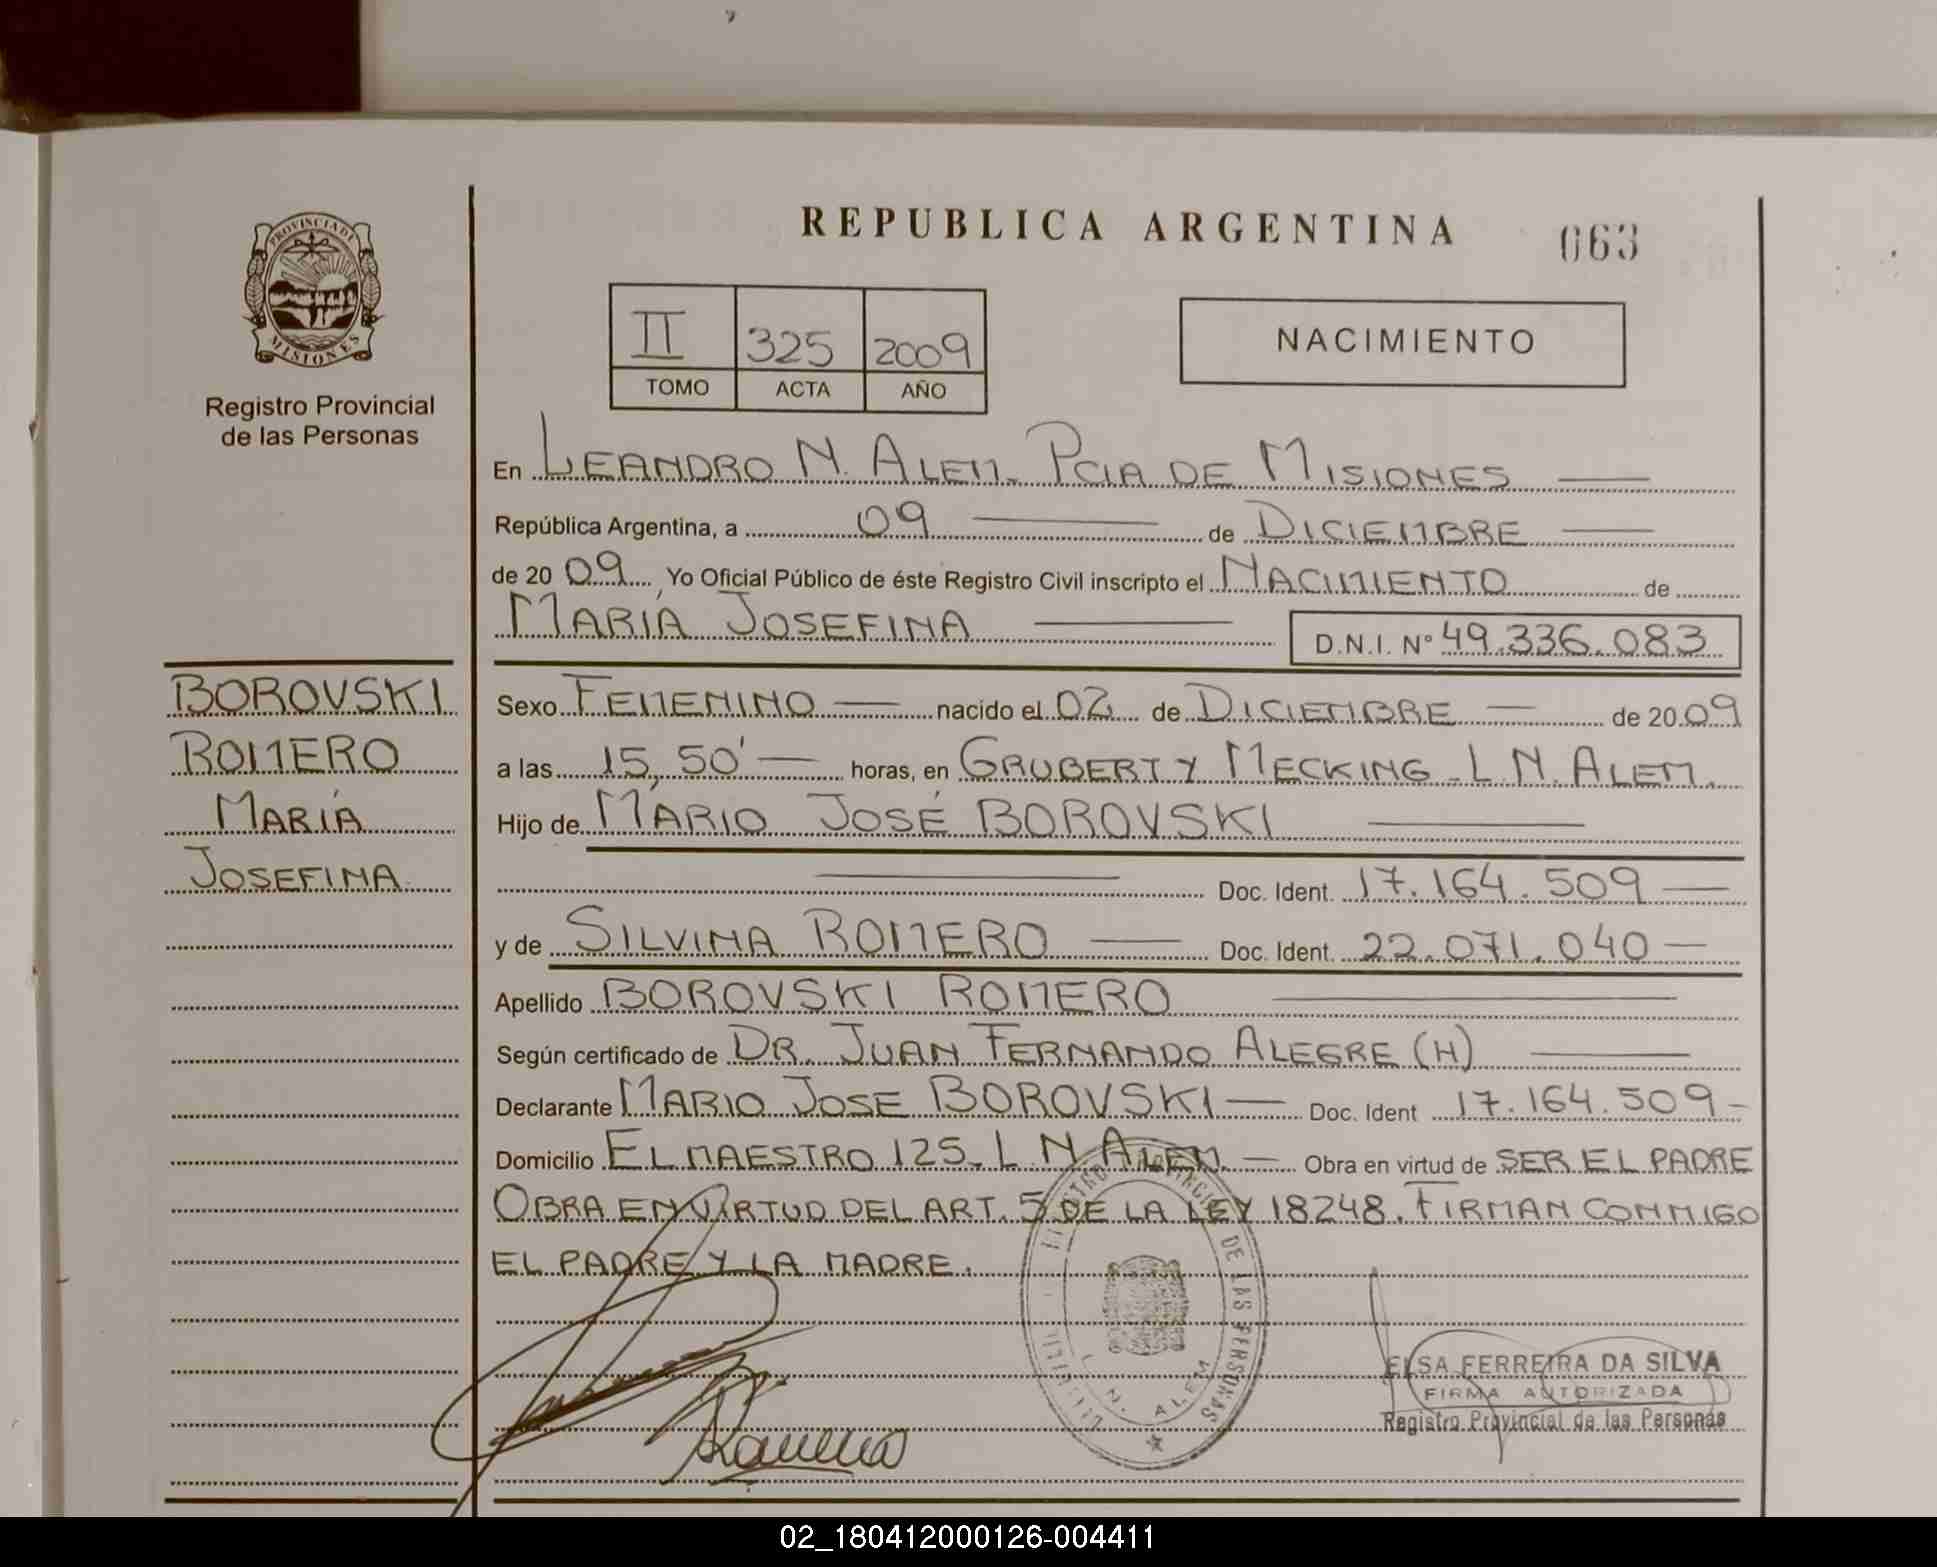 PROVINCIA DE
MISIONES
Registro Provincial
de las Personas
BOROVSKI
ROMERO
MARÍA
JOSEFINA
REPUBLICA ARGENTINA 063
II 325 2009
TOMO ACTA AÑO
NACIMIENTO
En LEANDRO N. ALEM. PCIA DE MISIONES
República Argentina, a 09 de DICIEMBRE
de 20 09 Yo Oficial Público de éste Registro Civil inscripto el NACIMIENTO de
MARÍA JOSEFINA D.N.I. Nº 49.336.083
Sexo FEMENINO nacido el 02 de DICIEMBRE de 20 09
a las 15,50' horas, en GRUBERT Y MECKING. L N. ALEM.
Hijo de MARIO JOSÉ BOROVSKI
Doc. Ident. 17.164.509
y de SILVINA ROMERO Doc. Ident. 22.071.040
Apellido BOROVSKI ROMERO
Según certificado de DR. JUAN FERNANDO ALEGRE (H)
Declarante MARIO JOSE BOROVSKI Doc. Ident 17.164.509
Domicilio EL MAESTRO 125. L N ALEM. Obra en virtud de SER EL PADRE
OBRA EN VIRTUD DEL ART. 5 DE LA LEY 18248. FIRMAN CONMIGO
EL PADRE Y LA MADRE.
PROVINCIAL DE LAS PERSONAS
L. N. ALEM
ELSA FERREIRA DA SILVA
FIRMA AUTORIZADA
Registro Provincial de las Personas
02_180412000126-004411